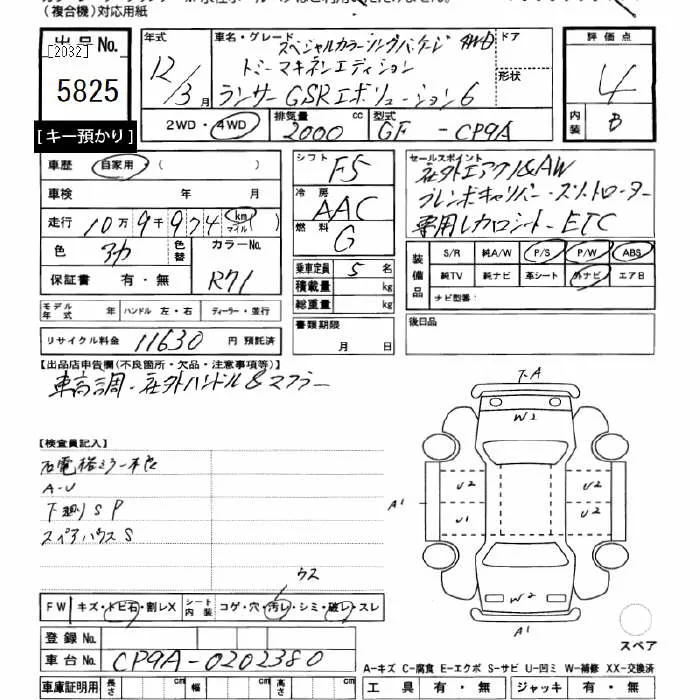 (複合機)対応用紙
出品No.
[2032]
5825
[キー預かり]
年式 12/3月
車名・グレード スペシャルカラーリングパッケージ 4WD
トミーマキネンエディション
ランサーGSRエボリューション6
ドア
形状
2WD・4WD
排気量 2000 cc
型式 GF - CP9A
評価点 4
内装 B
車歴 自家用 ( )
車検 年 月
走行 10万9千974 km マイル
色 アカ 色替 カラーNo. R71
保証書 有・無
シフト F5
冷房 AAC
燃料 G
乗車定員 5 名
積載量 kg
総重量 kg
書類期限 月 日
セールスポイント
社外エアクリ&AW
ブレンボキャリパー・スリットローター
専用レカロシート・ETC
装備品 S/R 純A/W P/S P/W ABS
純TV 純ナビ 革シート 外ナビ エアB
ナビ型番:
後日品
モデル年式 年 ハンドル 左・右 ディーラー・並行
リサイクル料金 11630 円 預託済
【出品店申告欄(不良箇所・欠品・注意事項等)】
車高調・社外ハンドル&マフラー
【検査員記入】
右電格ミラー不良
A-U
下廻りSP
スペアハウスS
ウス
FW キズ・トビ石・割レX シート内装 コゲ・穴・汚レ・シミ・破レ・スレ
登録No.
車台No. CP9A-0202380
車庫証明用 長さ cm 幅 cm 高さ cm
下A
W2
U2 U2
A1 U1 U2
W2
A1
スペア
A-キズ C-腐食 E-エクボ S-サビ U-凹ミ W-補修 XX-交換済
工具 有・無 ジャッキ 有・無